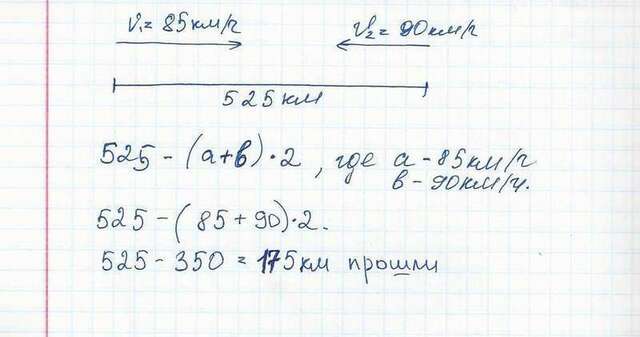 V₁= 85км/г V₂= 90км/г
525км
525 - (a+b)·2, где a - 85км/г
b - 90км/ч.
525 - (85 + 90)·2.
525 - 350 = 175км прошли